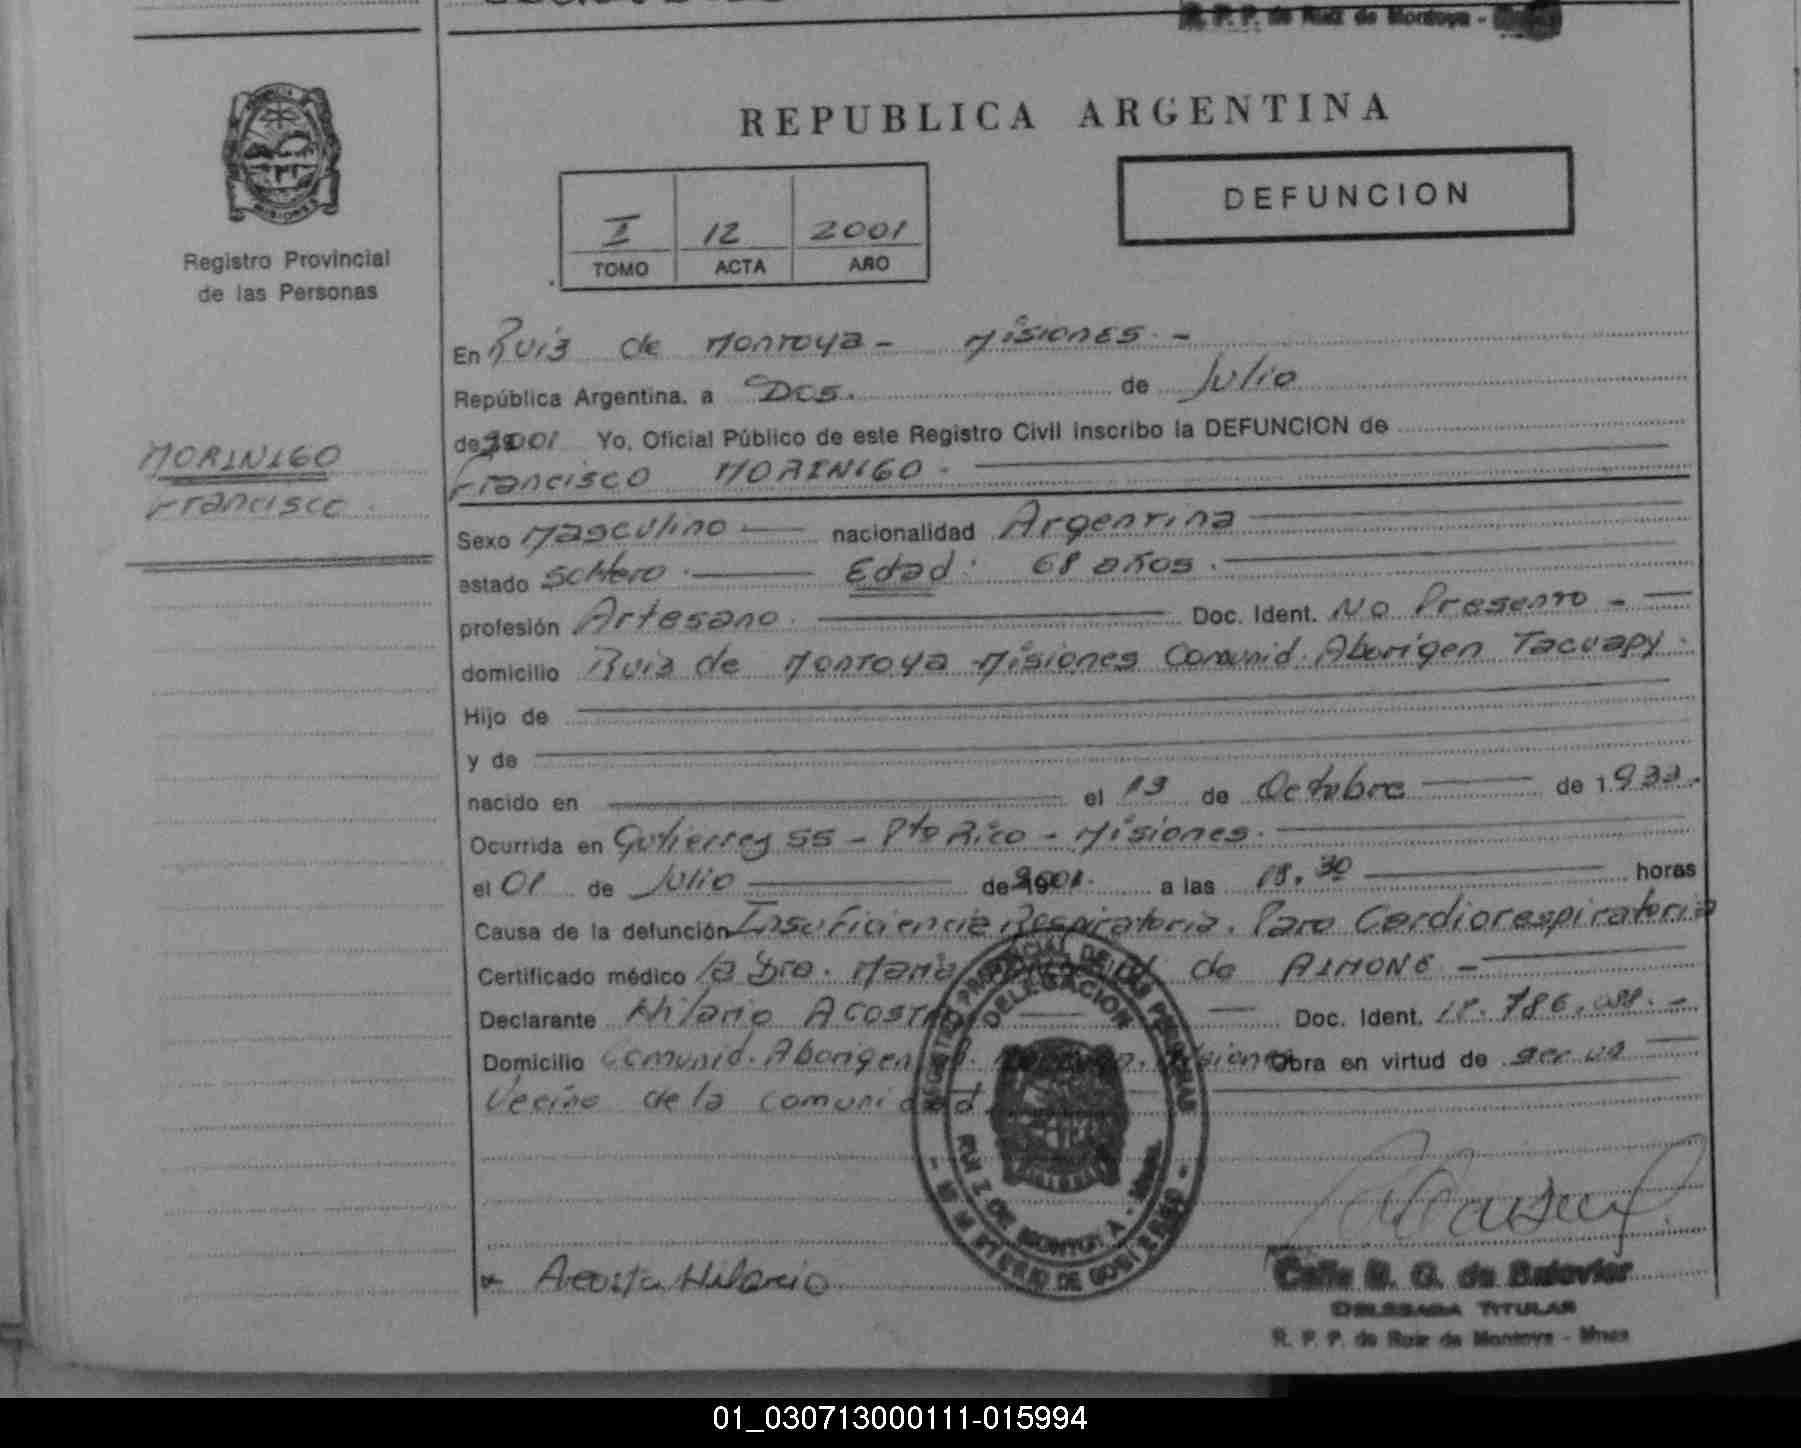 R. P. P. de Ruiz de Montoya -
PROVINCIA
MISIONES
Registro Provincial
de las Personas
REPUBLICA ARGENTINA
DEFUNCION
I 12 2001
TOMO ACTA AÑO
MORINIGO
Francisco
En Ruiz de Montoya - Misiones. -
República Argentina, a Dos. de Julio
de 2001 Yo, Oficial Público de este Registro Civil inscribo la DEFUNCION de
Francisco MORINIGO.
Sexo Masculino nacionalidad Argentina
estado Soltero. Edad: 68 años.
profesión Artesano. Doc. Ident. No Presento -
domicilio Ruiz de Montoya - Misiones Comunid. Aborigen Tacuapy.
Hijo de
y de
nacido en el 13 de Octubre de 1.933.
Ocurrida en Gutierrez 55 - Pto Rico - Misiones.
el 01 de Julio de 2001. a las 18,30 horas
Causa de la defunción Insuficiencia Respiratoria. Paro Cardiorespiratorio
Certificado médico la Dra. Maria de AIMONE -
Declarante Hilario Acosta Doc. Ident. 18.786.
Domicilio Comunid. Aborigen Misiones Obra en virtud de ser un
Vecino de la comunidad.
REGISTRO PROVINCIAL DE LAS PERSONAS
DELEGACION
RUIZ DE MONTOYA - Mnes.
- MINISTERIO DE GOBIERNO -
Acosta Hilario
Celia M. G. de
DELEGADA TITULAR
R. P. P. de Ruiz de Montoya - Mnes
01_030713000111-015994